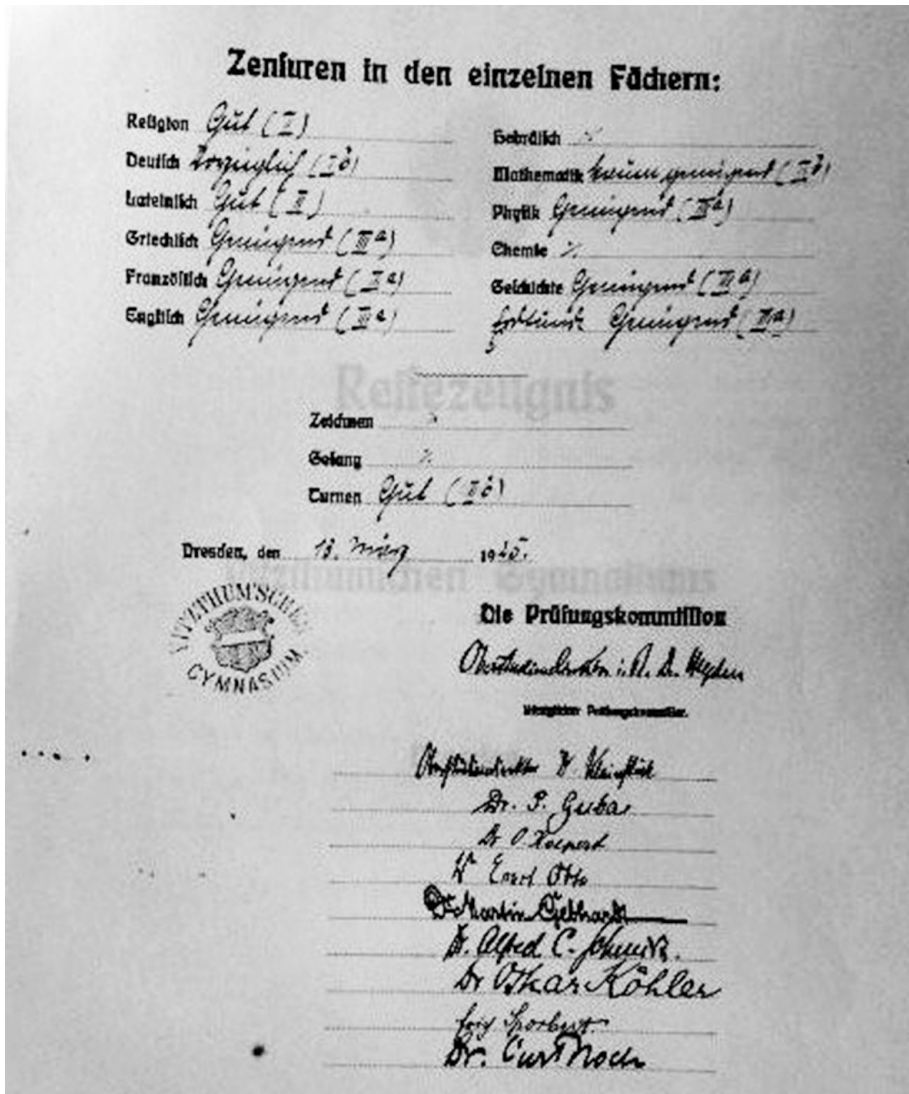 Zensuren in den einzelnen Fächern:
Religion Gut (II)
Deutsch Vorzüglich (Ib)
Lateinisch Gut (II)
Griechisch Genügend (IIIa)
Französisch Genügend (IIIa)
Englisch Genügend (IIIa)
Hebräisch
Mathematik kaum genügend
Physik Genügend (IIIa)
Chemie
Geschichte Genügend (IIIa)
Erdkunde Genügend (IIIa)
Reifezeugnis
Zeichnen
Gesang
Turnen Gut (IIb)
Dresden, den 13. März 1925.
Vitzthumschen Gymnasiums
VITZTHUM'SCHES
GYMNASIUM.
Die Prüfungskommission
Oberstudiendirektor i. R. Dr.
Prüfungskommissar.
Oberstudiendirektor Dr. Kleinstück
Dr. P. Guba
Dr. O.
Dr. Ernst Otto
Dr. Martin Gebhardt
Dr. Alfred C. Schmidt.
Dr. Oskar Köhler
Dr. Curt Noch